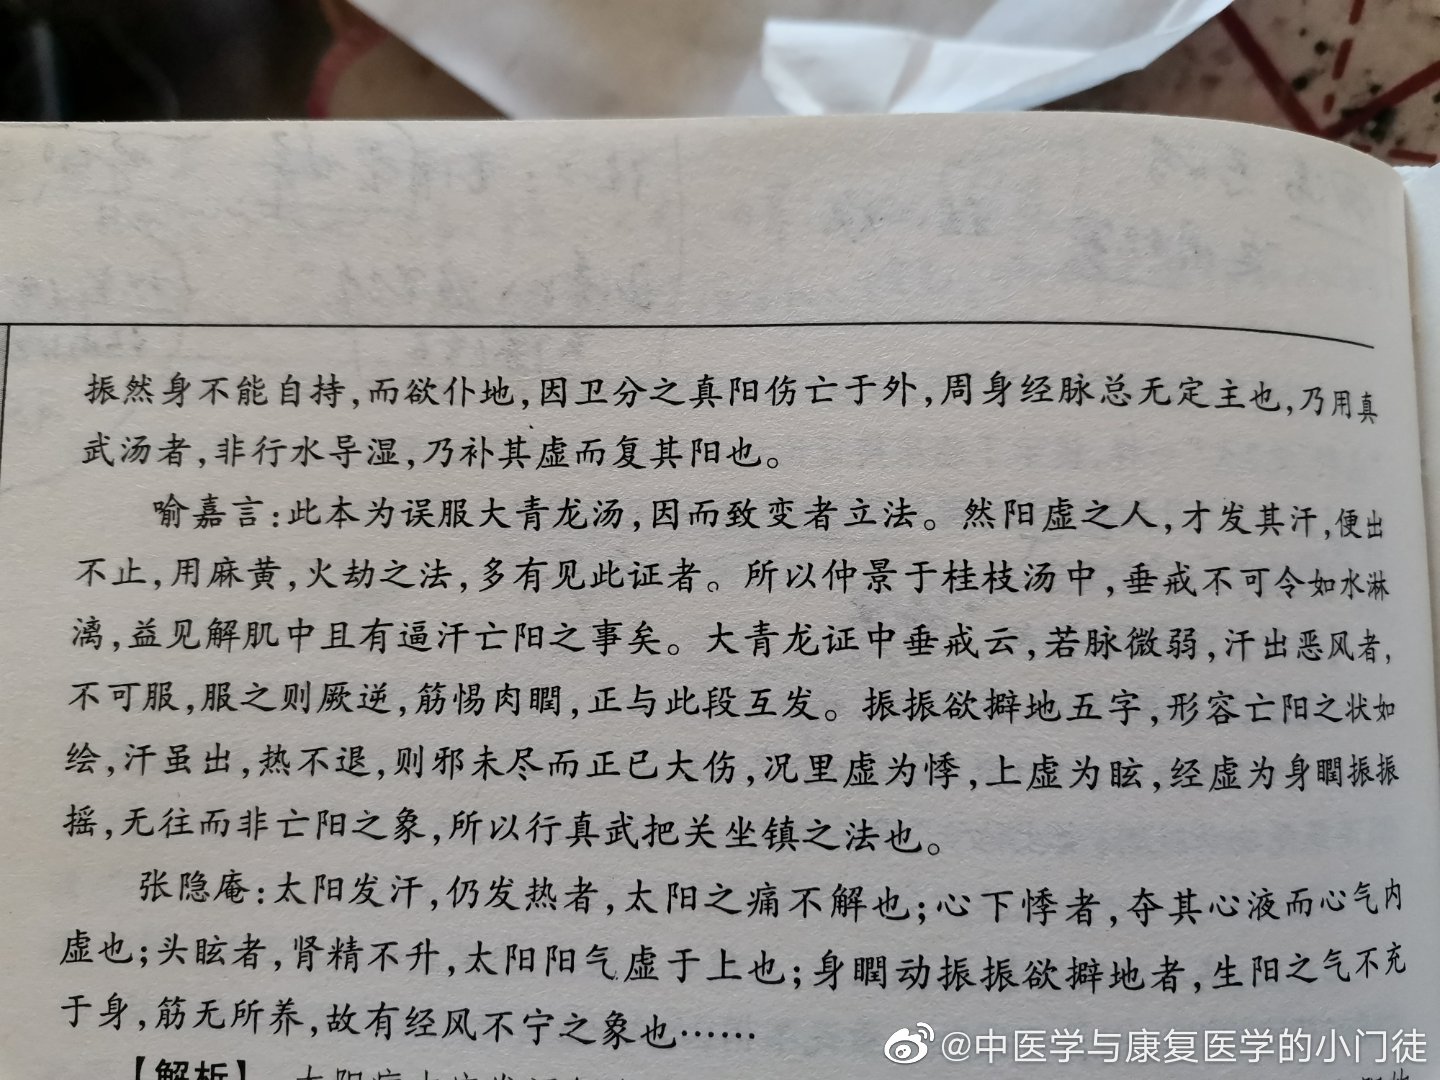 振然身不能自持，而欲仆地，因卫分之真阳伤亡于外，周身经脉总无定主也，乃用真
武汤者，非行水导湿，乃补其虚而复其阳也。
喻嘉言：此本为误服大青龙汤，因而致变者立法。然阳虚之人，才发其汗，便出
不止，用麻黄，火劫之法，多有见此证者。所以仲景于桂枝汤中，垂戒不可令如水淋
漓，益见解肌中且有逼汗亡阳之事矣。大青龙证中垂戒云，若脉微弱，汗出恶风者，
不可服，服之则厥逆，筋惕肉瞤，正与此段互发。振振欲擗地五字，形容亡阳之状如
绘，汗虽出，热不退，则邪未尽而正已大伤，况里虚为悸，上虚为眩，经虚为身瞤振振
摇，无往而非亡阳之象，所以行真武把关坐镇之法也。
张隐庵：太阳发汗，仍发热者，太阳之痛不解也；心下悸者，夺其心液而心气内
虚也；头眩者，肾精不升，太阳阳气虚于上也；身瞤动振振欲擗地者，生阳之气不充
于身，筋无所养，故有经风不宁之象也……
【解析】
@中医学与康复医学的小门徒